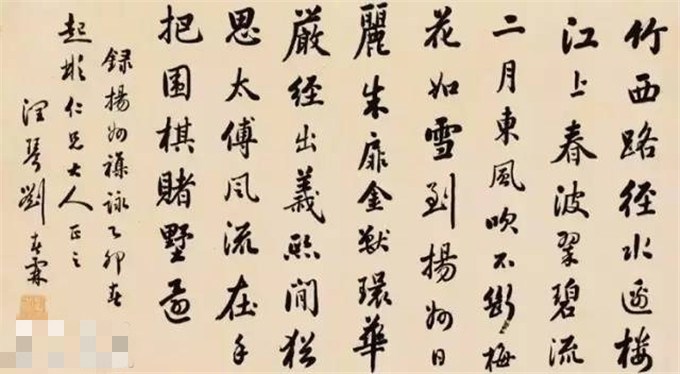 竹西路徑水邊樓
江上春波翠碧流
二月東風吹不斷梅
花如雪到揚州日
麗朱扉金獸環華
嚴經出義熙間猶
思太傅風流在手
把围棋賭墅還
録揚州禊詠乙卯春
起彬仁兄大人正之
潤琴劉春霖